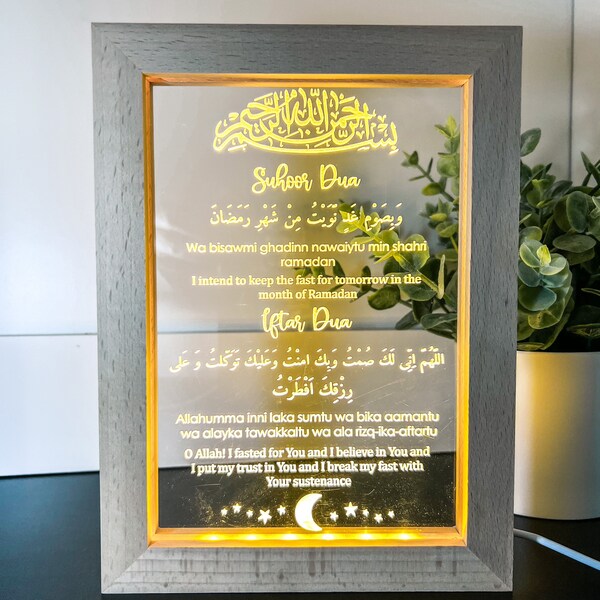 بسم الله الرحمن الرحيم
Suhoor Dua
وَبِصَوْمِ غَدٍ نَّوَيْتُ مِنْ شَهْرِ رَمَضَانَ
Wa bisawmi ghadinn nawaiytu min shahri
ramadan
I intend to keep the fast for tomorrow in the
month of Ramadan
Iftar Dua
اللَّهُمَّ اِنِّى لَكَ صُمْتُ وَبِكَ امَنْتُ وَعَلَيْكَ تَوَكَّلْتُ وَ عَلى
رِزْقِكَ اَفْطَرْتُ
Allahumma inni laka sumtu wa bika aamantu
wa alayka tawakkaltu wa ala rizq-ika-aftartu
O Allah! I fasted for You and I believe in You and
I put my trust in You and I break my fast with
Your sustenance